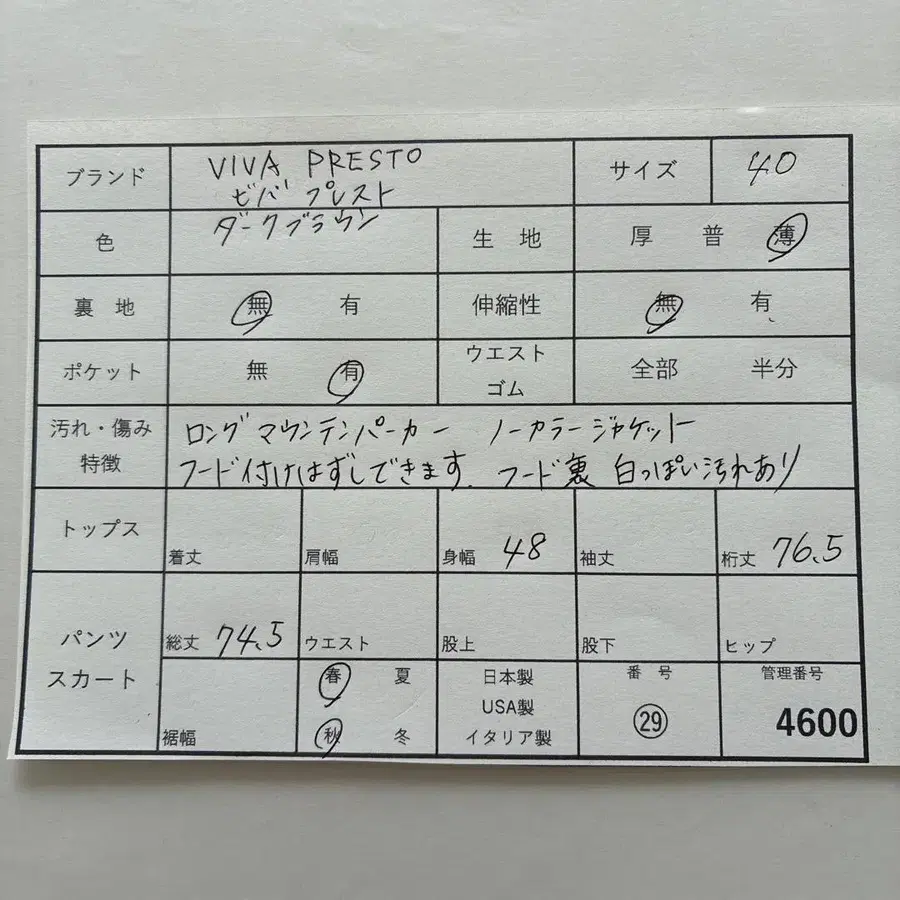 ブランド VIVA PRESTO サイズ 40
ビバ プレスト
色 ダークブラウン 生地 厚 普 薄
裏地 無 有 伸縮性 無 有
ポケット 無 有 ウエスト 全部 半分
ゴム
汚れ・傷み ロングマウンテンパーカー ノーカラージャケット
特徴 フード付けはずしできます. フード裏 白っぽい汚れあり
トップス 着丈 肩幅 身幅 48 袖丈 裄丈 76.5
パンツ 総丈 74.5 ウエスト 股上 股下 ヒップ
スカート 春 夏 日本製 番号 管理番号
USA製 29 4600
裾幅 秋 冬 イタリア製